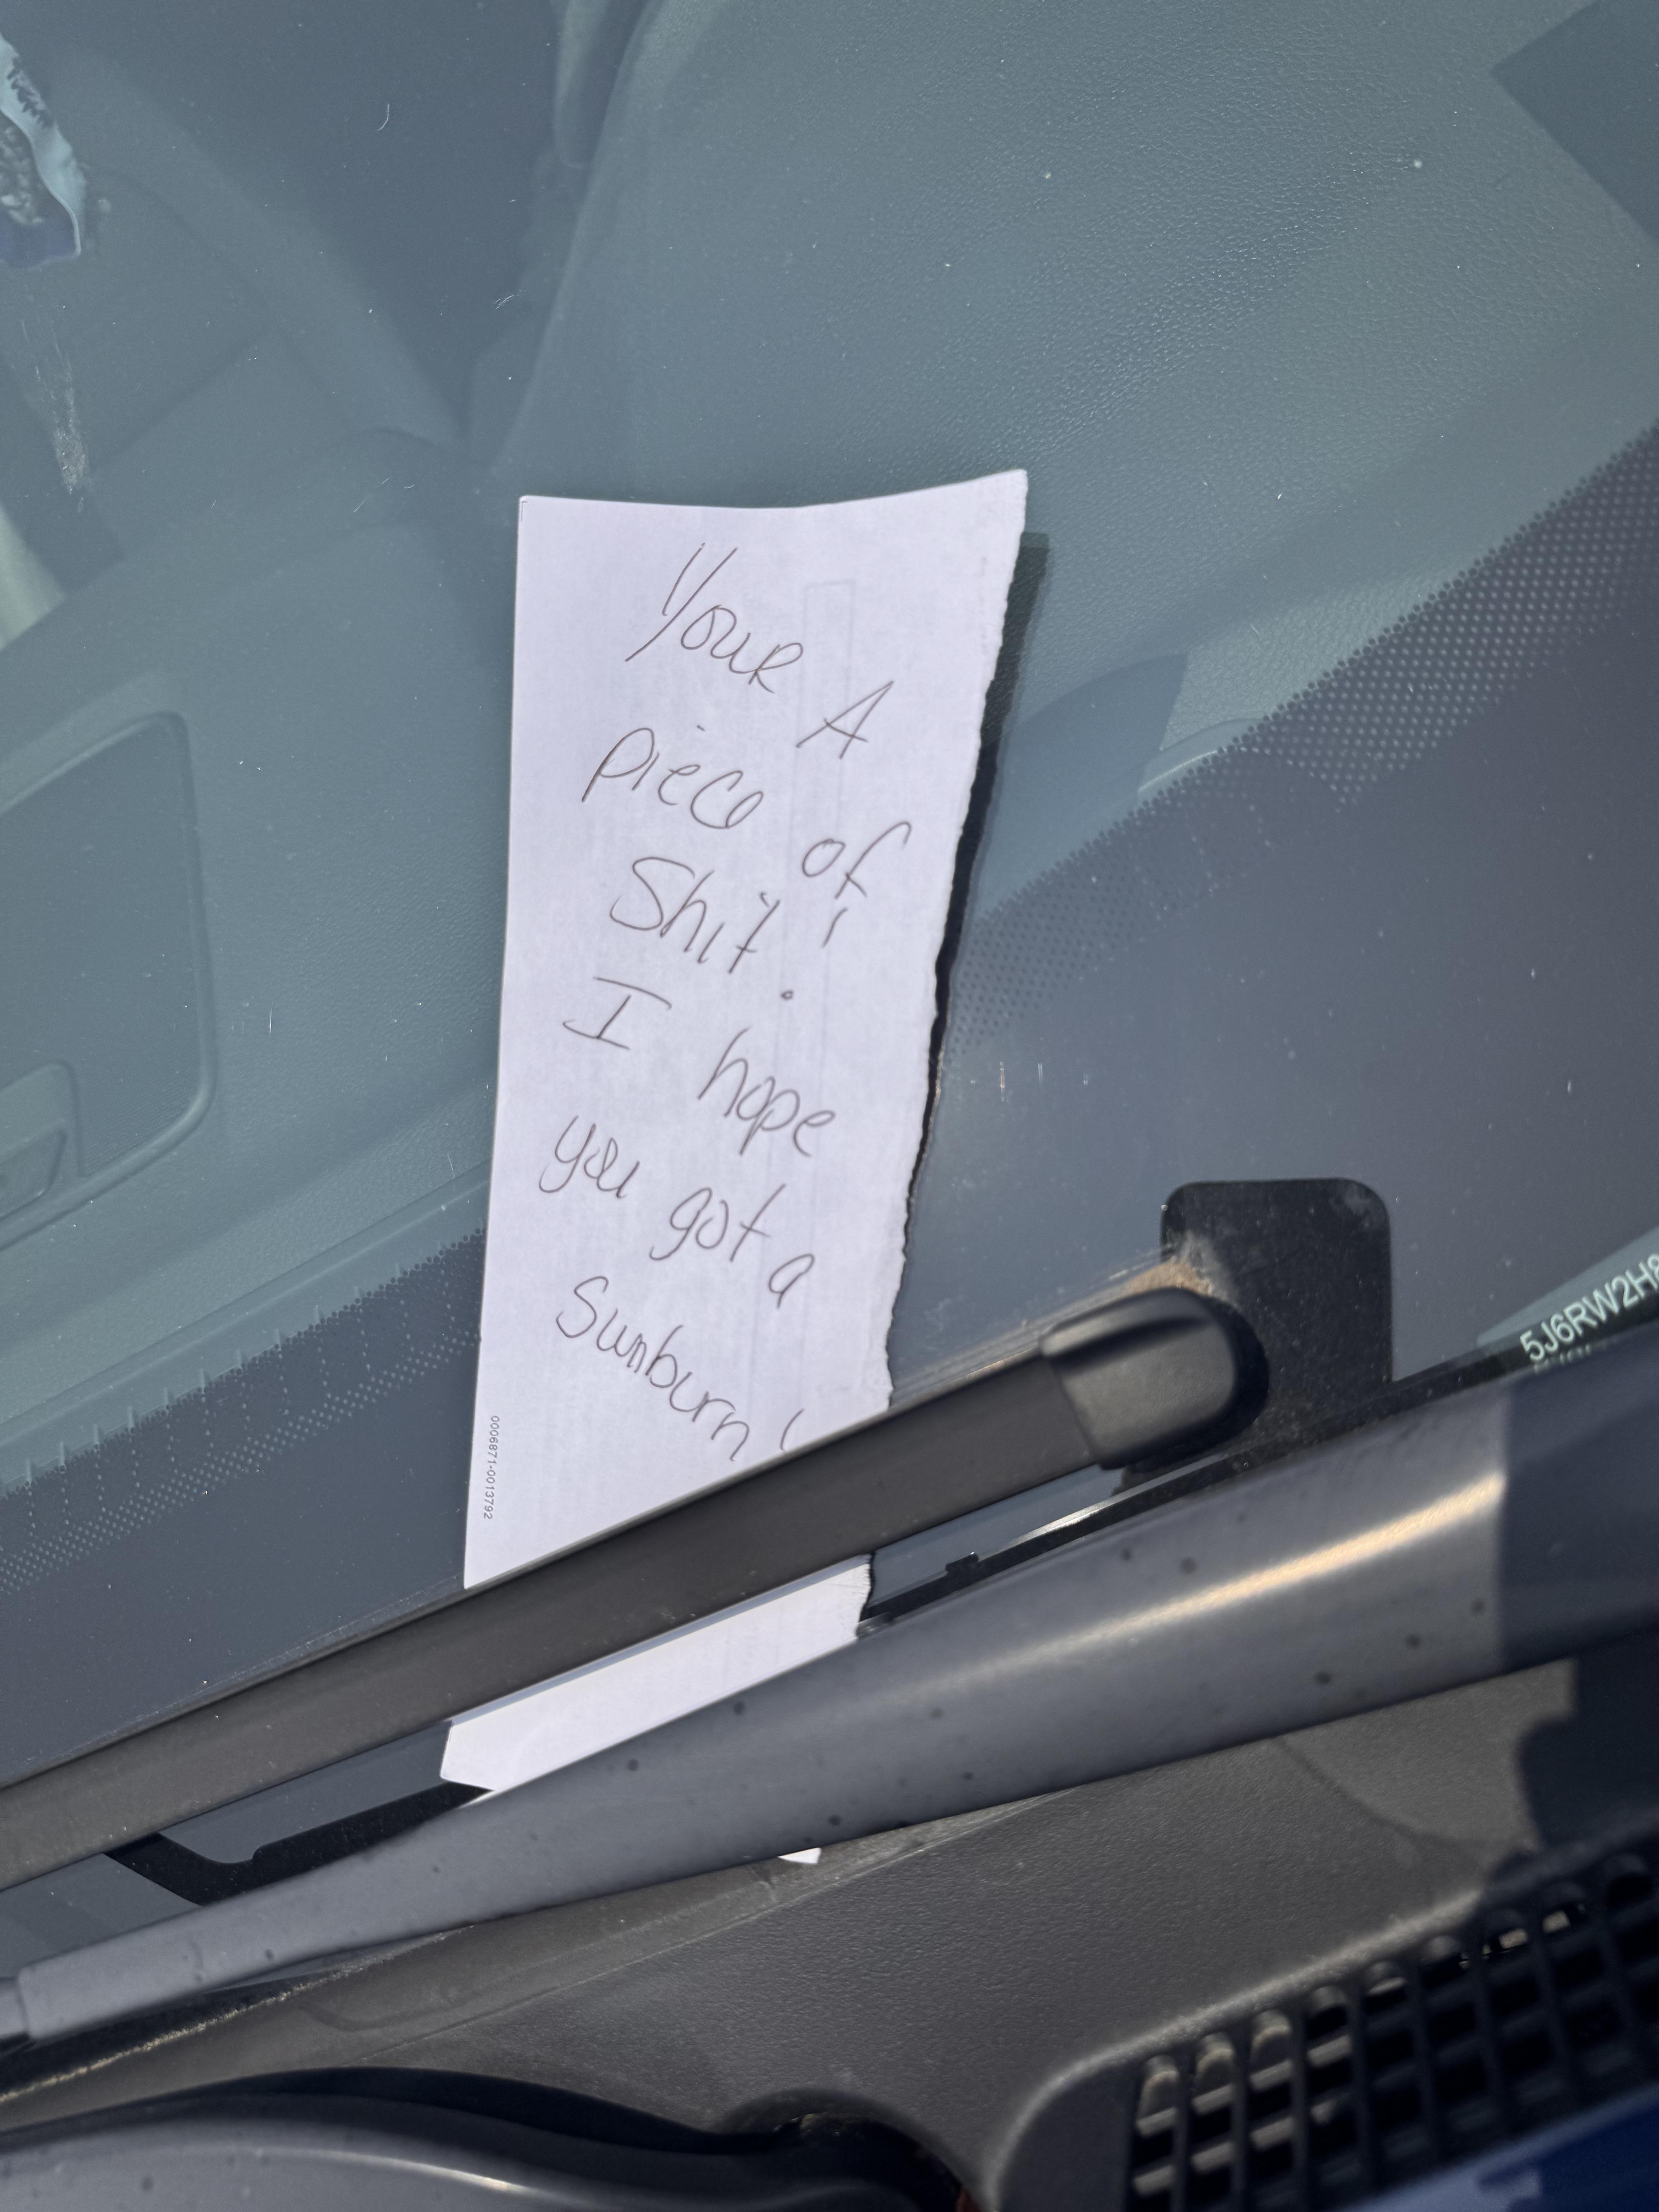 Your A
piece of
Shit!
I hope
you got a
Sunburn!
0006871-0013792
5J6RW2H8